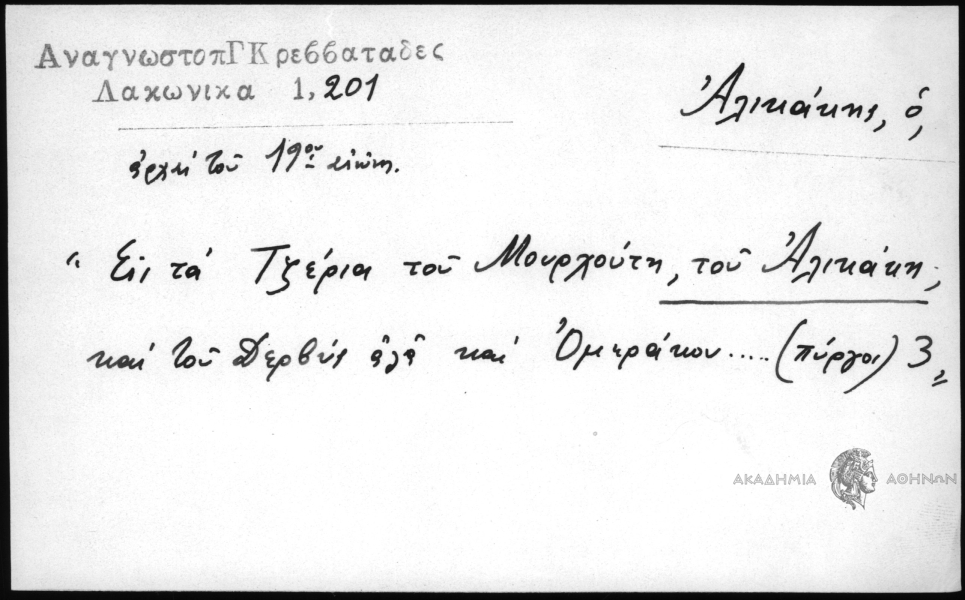 ΑναγνωστοπΓΚρεββαταδες
Λακωνικα 1, 201
Ἀλικάκης, ὁ,
ἀρχαί τοῦ 19ου αἰῶνος.
"Εἰς τά Τζέρια τοῦ Μουρχούτη, τοῦ Ἀλικάκη,
καί τοῦ Δερβύς ἀλῆ καί Ὀμεράκου..... (πύργοι) 3"
ΑΚΑΔΗΜΙΑ ΑΘΗΝΩΝ